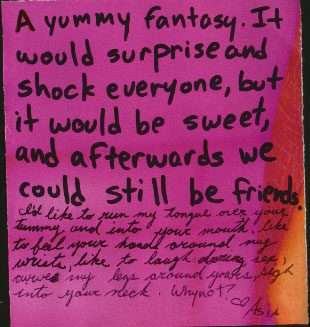 A yummy fantasy. It
would surprise and
shock everyone, but
it would be sweet,
and afterwards we
could still be friends.
I'd like to run my tongue over your
tummy and into your mouth, like
to feel your hands around my
wrists, like to laugh during sex,
curve my legs around yours, sigh
into your neck. Why not?
♡ Asia